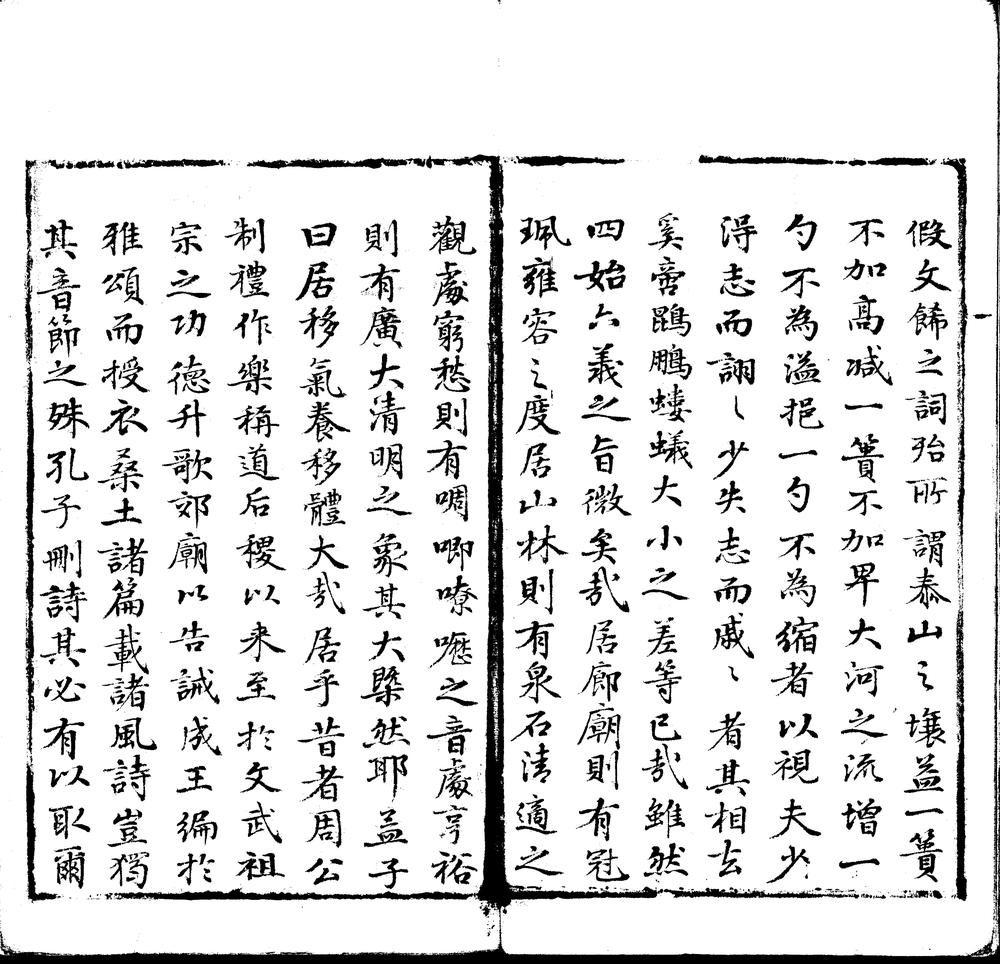 假文餙之詞殆所謂泰山之壤益一簣
不加高减一簣不加卑大河之流增一
勺不為溢挹一勺不為縮者以視夫少
得志而詡〻少失志而戚〻者其相去
奚啻鵾鵬螻蟻大小之差等已哉雖然
四始六義之旨微矣哉居廊廟則有冠
珮雍容之度居山林則有泉石清適之
觀處窮愁則有啁唧嘹嚦之音處亨裕
則有廣大清明之象其大槩然耶孟子
曰居移氣養移體大哉居乎昔者周公
制禮作樂稱道后稷以来至扵文武祖
宗之功德升歌郊廟以告誡成王編扵
雅頌而授衣桑土諸篇載諸風詩豈獨
其音節之殊孔子刪詩其必有以取爾